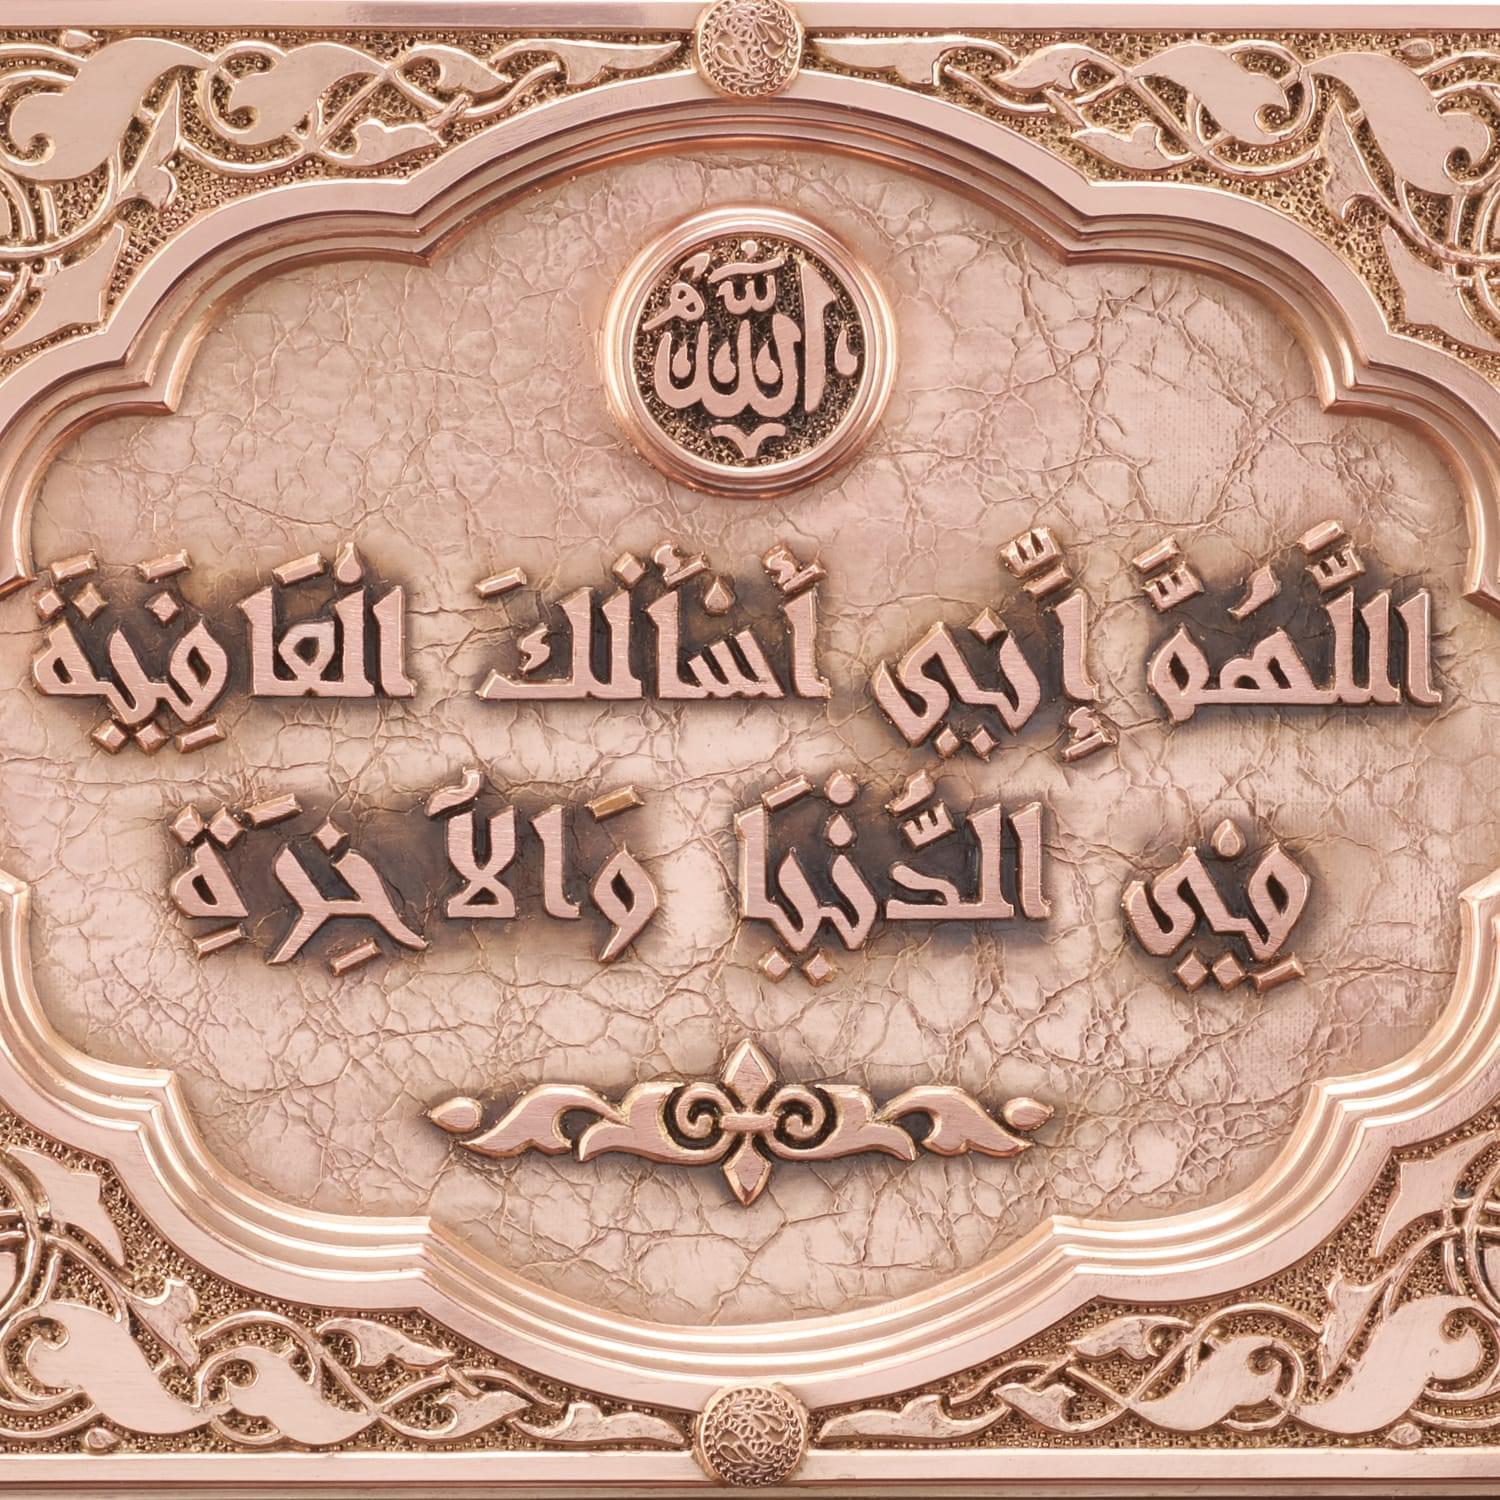 الله
اللَّهُمَّ إِنِّي أَسْأَلُكَ الْعَافِيَةَ
فِي الدُّنْيَا وَالْآخِرَةِ